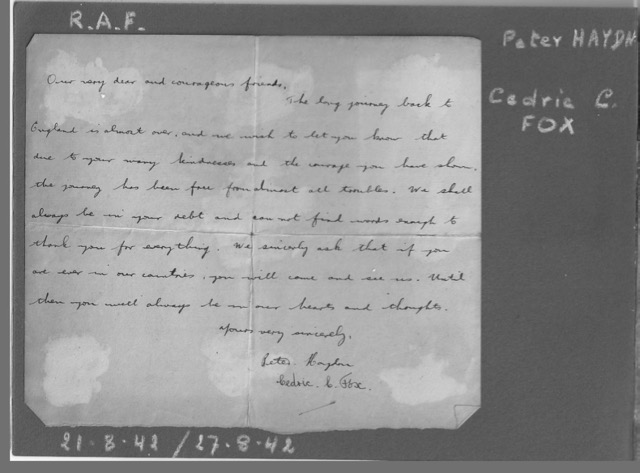 R.A.F.
Peter HAYDN
Cedric C.
FOX
Our very dear and courageous friends,
The long journey back to
England is almost over, and we wish to let you know that
due to your many kindnesses and the courage you have shown,
the journey has been free from almost all troubles. We shall
always be in your debt and can not find words enough to
thank you for everything. We sincerly ask that if you
are ever in our countries, you will come and see us. Until
then you will always be in our hearts and thoughts.
Yours very sincerely,
Peter Haydn
Cedric. C. Fox.
21-8-42 / 27-8-42